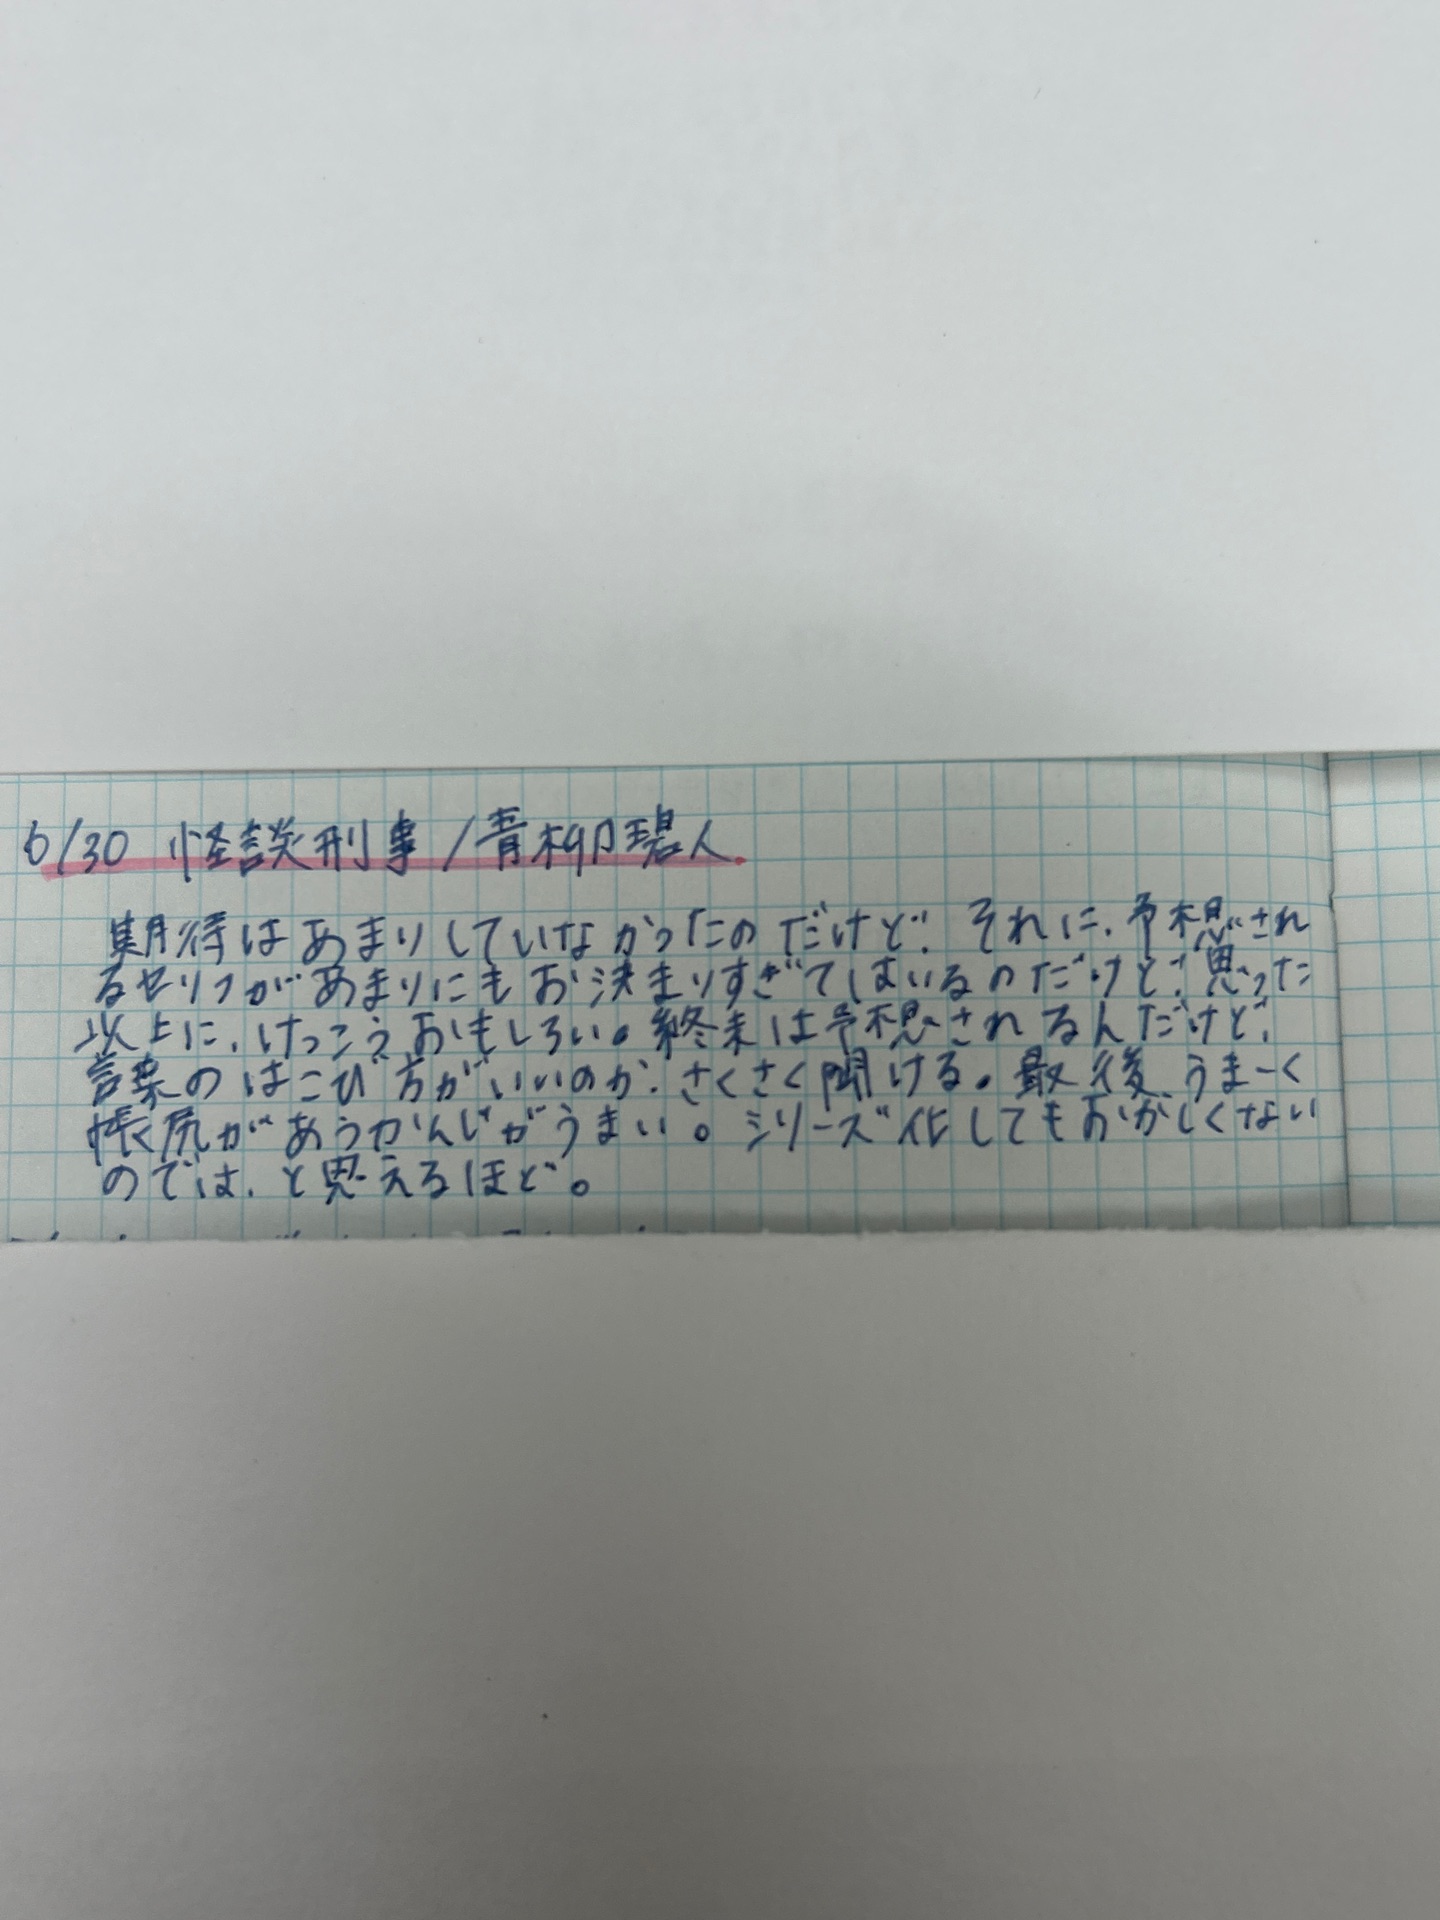 6/30 怪談刑事/青柳碧人
期待はあまりしていなかったのだけど、それに、予想され
るセリフがあまりにもお決まりすぎてしまいるのだけど、思った
以上に、けっこうおもしろい。終末は予想されるんだけど、
言葉のはこび方がいいのか、さくさく聞ける。最後、うまーく
帳尻があうかんじがうまい。シリーズ化してもおかしくない
のでは、と思えるほど。